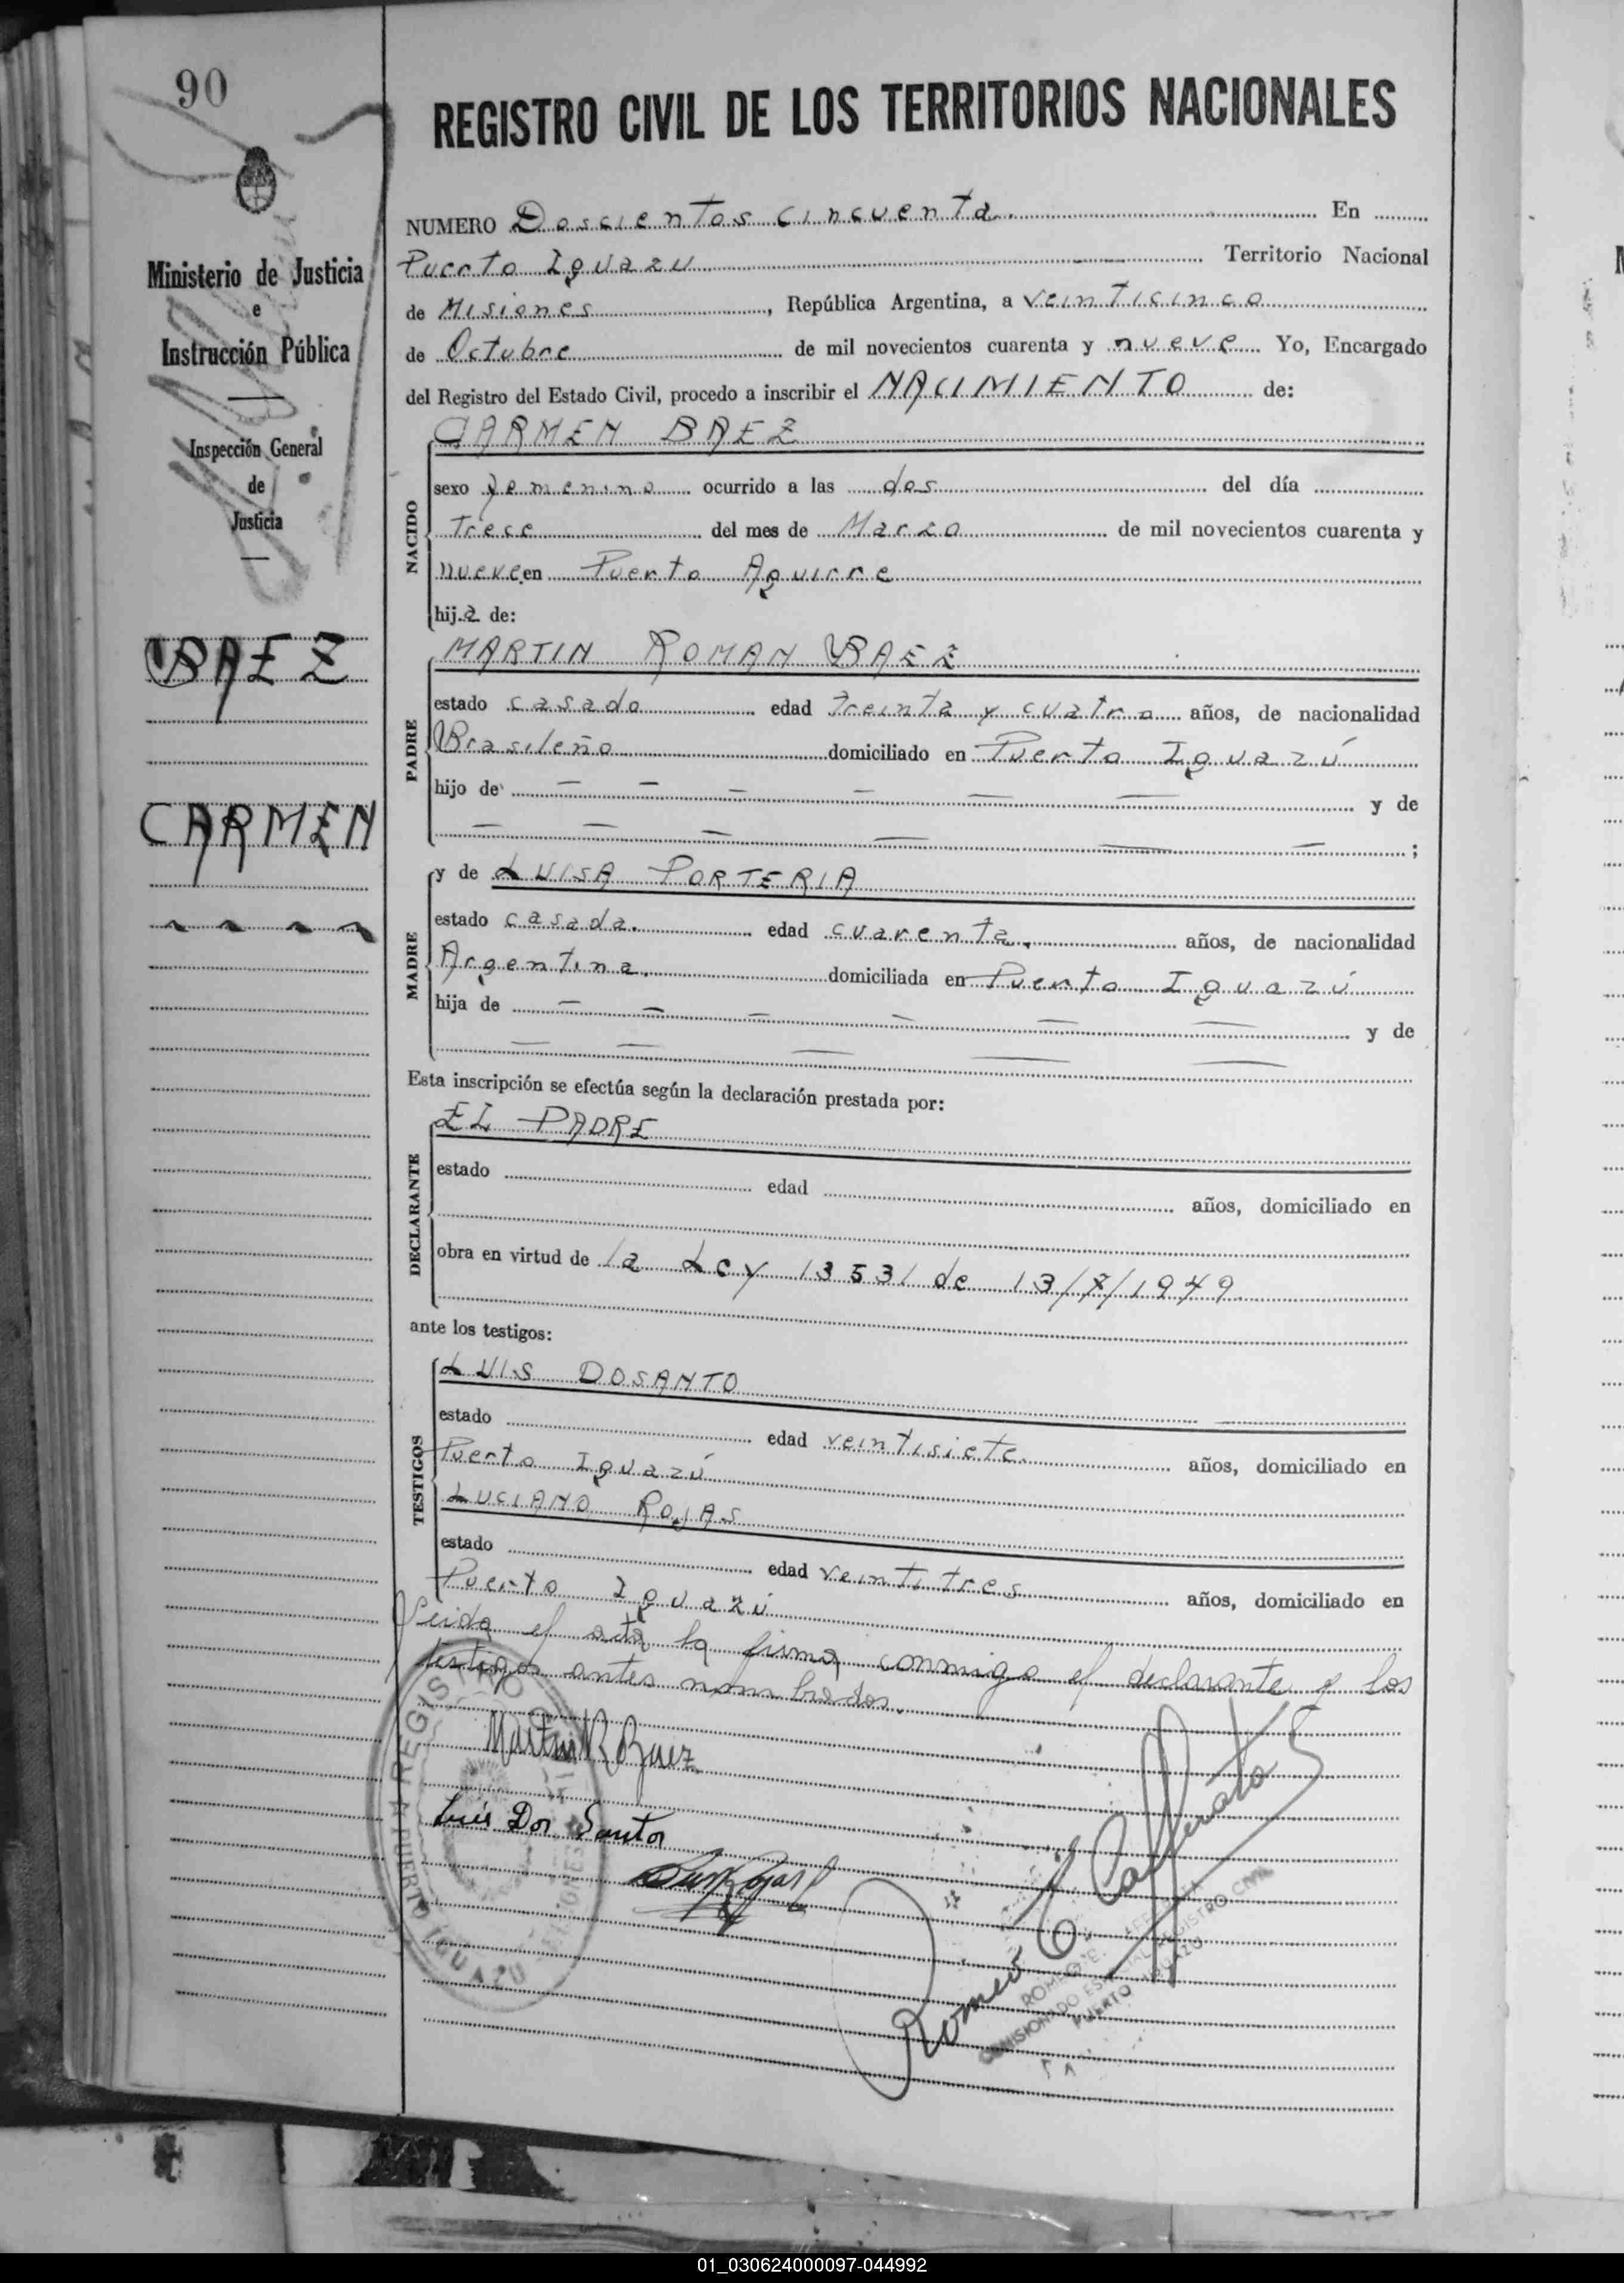 90
REGISTRO CIVIL DE LOS TERRITORIOS NACIONALES
Ministerio de Justicia
e
Instrucción Pública
Inspección General
de
Justicia
BAEZ
CARMEN
NUMERO Doscientos cincuenta. En
Puerto Iguazu Territorio Nacional
de Misiones, República Argentina, a veinticinco
de Octubre de mil novecientos cuarenta y nueve Yo, Encargado
del Registro del Estado Civil, procedo a inscribir el NACIMIENTO de:
CARMEN BAEZ
NACIDO
sexo femenino ocurrido a las dos del día
Trece del mes de Marzo de mil novecientos cuarenta y
nueve en Puerto Aguirre
hija de:
MARTIN ROMAN BAEZ
PADRE
estado casado edad treinta y cuatro años, de nacionalidad
Brasileño domiciliado en Puerto Iguazú
hijo de — — — — — — y de
— — — — — — ;
y de LUISA PORTERIA
MADRE
estado casada. edad cuarenta. años, de nacionalidad
Argentina. domiciliada en Puerto Iguazú
hija de — — — — — — y de
— — — — —
Esta inscripción se efectúa según la declaración prestada por:
EL PADRE
DECLARANTE
estado edad años, domiciliado en
obra en virtud de la Ley 13531 de 13/7/1949.
ante los testigos:
LUIS DOSANTO
TESTIGOS
estado edad veintisiete. años, domiciliado en
Puerto Iguazú
LUCIANO ROJAS
estado edad veintitres años, domiciliado en
Puerto Iguazú
Leida el acta la firma conmigo el declarante y los
testigos antes nombrados.
Martin R Baez
Luis Dos Santos
Rojas
Romeo E
REGISTRO
PUERTO IGUAZU
MISIONES
ROMEO E.
COMISIONADO ESPECIAL REGISTRO CIVIL
PUERTO IGUAZU
01_030624000097-044992